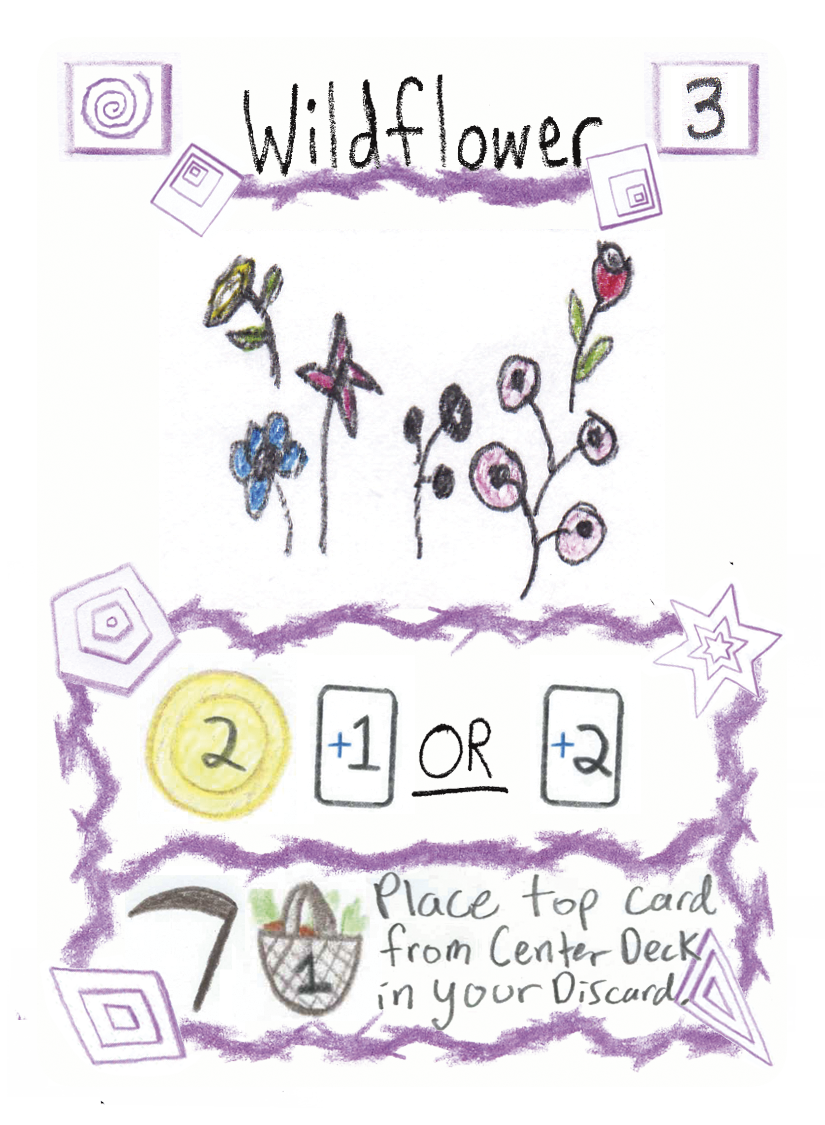 Wildflower
3
2 +1 OR +2
1
Place top card
from Center Deck
in your Discard.